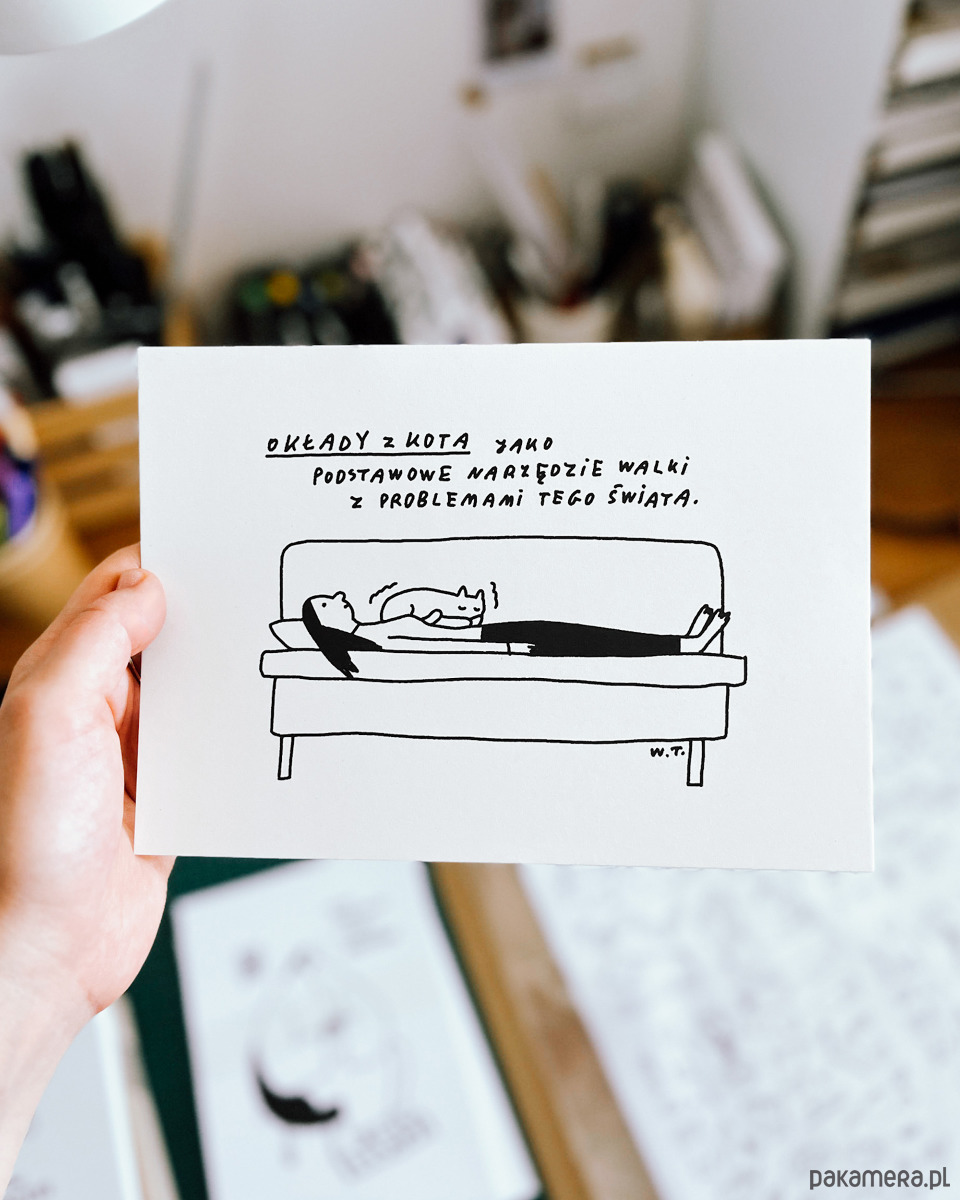 OKŁADY z KOTA JAKO
PODSTAWOWE NARZĘDZIE WALKI
Z PROBLEMAMI TEGO ŚWIATA.
W.T.
pakamera.pl